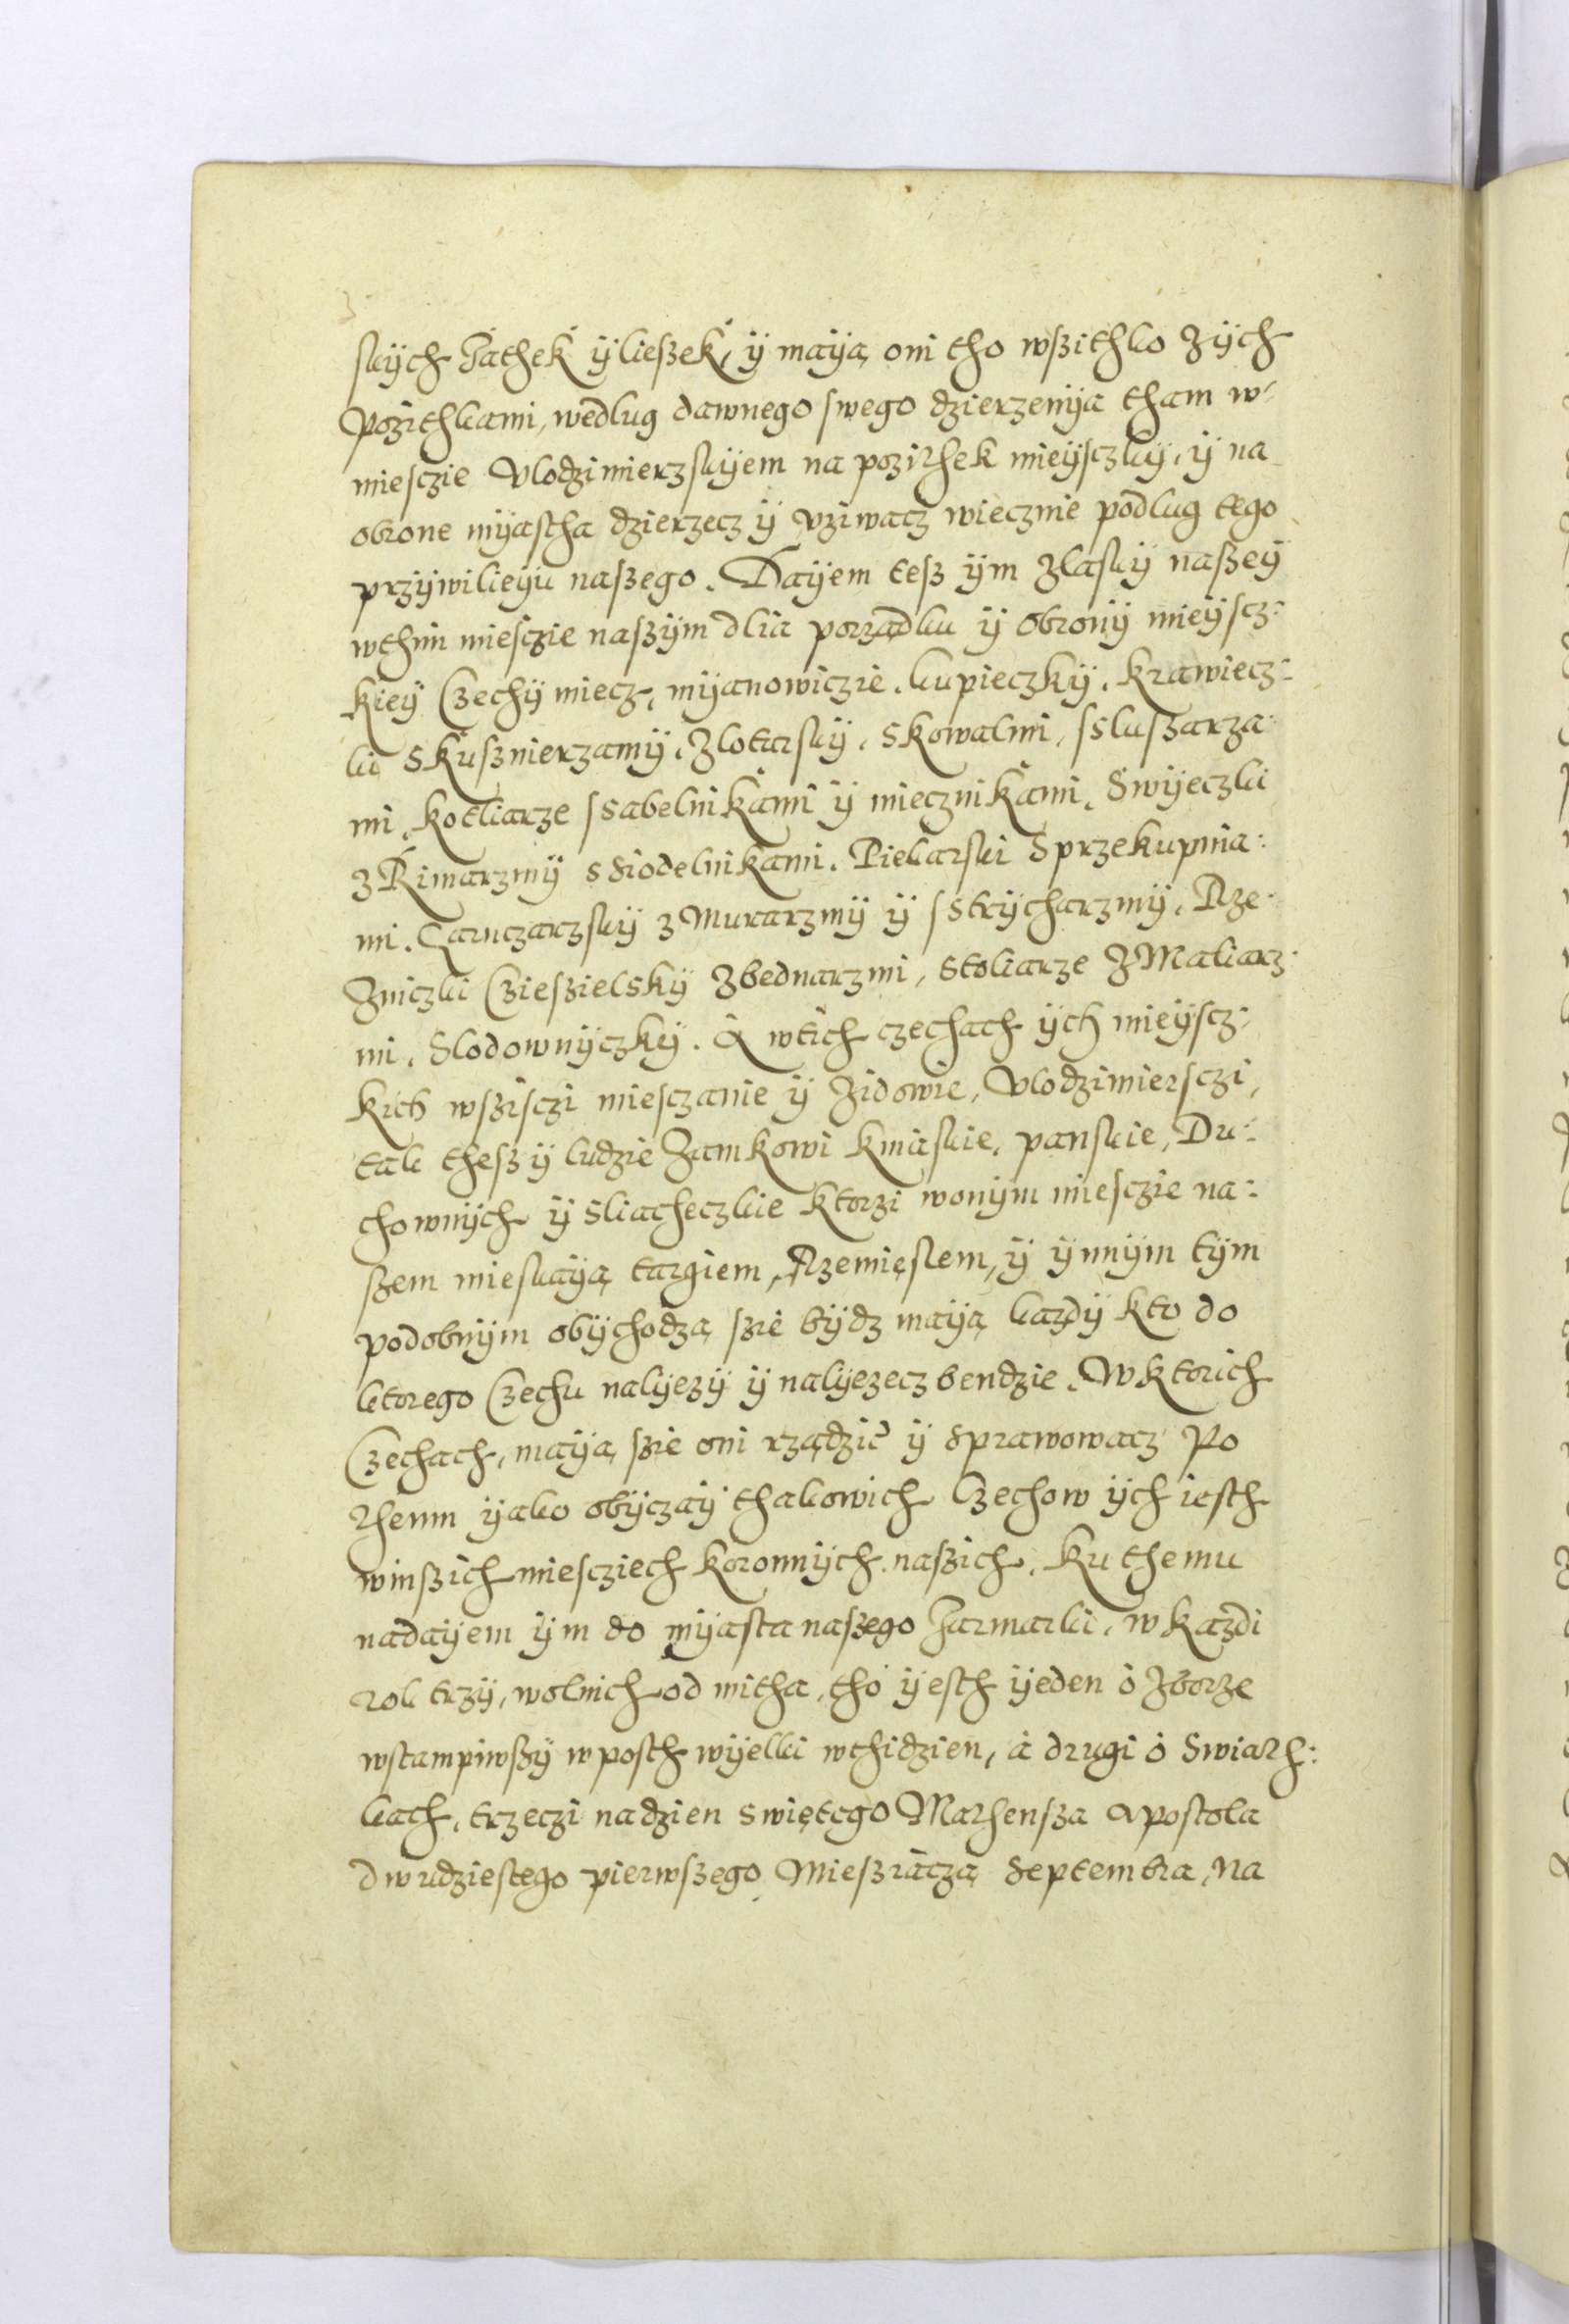 skych Jathek y lieszek, y maya oni tho wszithko zych
pozithkami, wedlug dawnego swego dzierzenya tham w-
miesczie Vlodzimierzskyem na pozithek mieysczky, y na
obrone myastha dzierzecz y vziwacz wiecznie podlug tego
przywilieyu naszego. Dayem tesz ym zlasky naszey
wthim miesczie naszym dlia porządku y obrony mieyscz:
kiey Czechy miecz, myanowiczie. kupieczky. krawiecz:
ki skusznierzamy, zlotarsky, skowalmi, ssluszarza:
mi, kotliarze ssabelnikami y miecznikami. Swyeczki
z Rimarzmy ssiodelnikami. Piekarski sprzekupnia:
mi. Garnczarzsky z Murarzmy y sstrycharzmy. Rze:
zniczki Cziesielsky zbednarzmi, stoliarze z Maliarz:
mi. Slodownyczky. A wtich czechach ych mieyscz:
kich wszisczi miesczanie y zidowie, Vlodzimiersczi,
tak thesz y ludzie zamkowi kniaskie, panskie, Du:
chownych y sliacheczkie ktorzi wonym miesczie na:
szem mieskayą targiem, Rzemięslem, y ynnym tym
podobnym obychodzą szie bydz mayą kazdy kto do
ktorego Czechu nalyezy y nalyezecz bendzie. W ktorich
Czechach, mayą szie oni rządzic y sprawowacz po
themu yako obyczay thakowich Czechow ych iesth
winszich miesciech koronnych naszich. Ku themu
nadayem ym do myasta naszego Jarmarki, w kazdi
rok trzy, wolnich od mitha, tho yesth yeden o Zborze
wstampiwszy w posth wyelki wthidzien, a drugi o Swiath:
kach, trzeczi na dzien swiętego Mathensza apostola
dwudziestego pierwszego Mieszrącza Septembra, na